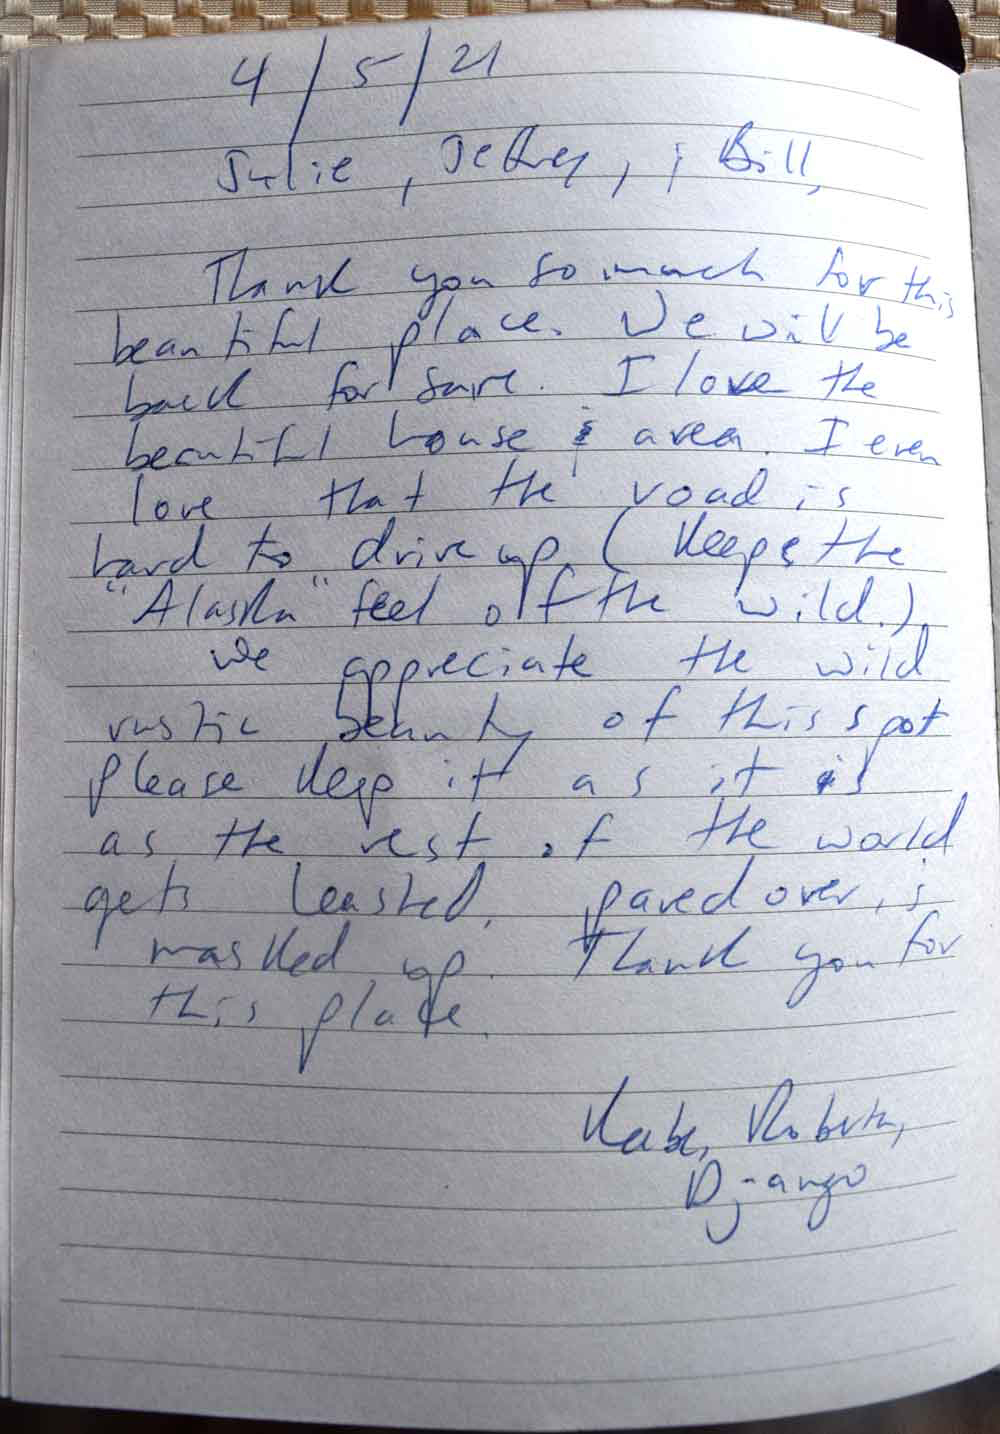 4/5/21
Julie, Jeffrey, & Bill,
Thank you so much for this
beautiful place. We will be
back for sure. I love the
beautiful house & area. I even
love that the road is
hard to drive up (keeps the
"Alaska" feel of the wild.)
We appreciate the wild
rustic beauty of this spot
please keep it as it is
as the rest of the world
gets leashed, paved over, &
masked up. Thank you for
this place.
Roberta,
Django